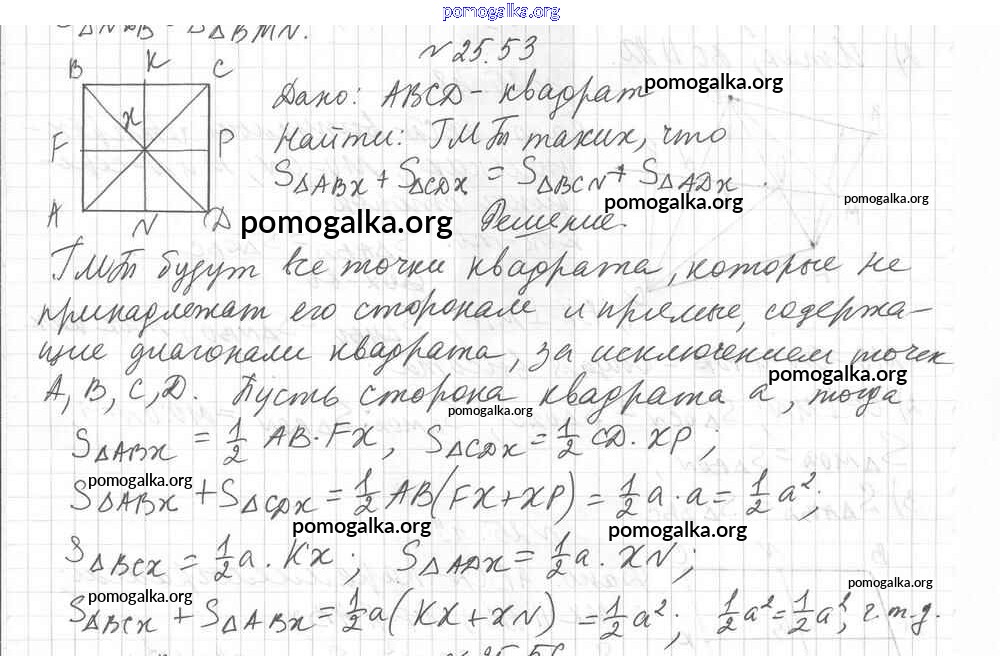 pomogalka.org
S△NKB = S△BMN.
№25.53
B K C
Дано: ABCD - квадрат
pomogalka.org
x
F P
Найти: ГМТ таких, что
S△ABX + S△CDX = S△BCN + S△ADX.
A N D
pomogalka.org
pomogalka.org
pomogalka.org
Решение.
ГМТ будут все точки квадрата, которые не
принадлежат его сторонам и прямые, содержа-
щие диагонали квадрата, за исключением точек
pomogalka.org
A, B, C, D. Пусть сторона квадрата a, тогда
pomogalka.org
S△ABX = 1/2 AB · FX, S△CDX = 1/2 CD · XP;
pomogalka.org
S△ABX + S△CDX = 1/2 AB (FX + XP) = 1/2 a · a = 1/2 a²;
pomogalka.org
pomogalka.org
S△BCX = 1/2 a · KX; S△ADX = 1/2 a · XN;
pomogalka.org
pomogalka.org
S△BCX + S△ABX = 1/2 a (KX + XN) = 1/2 a²; 1/2 a² = 1/2 a², ч.т.д.